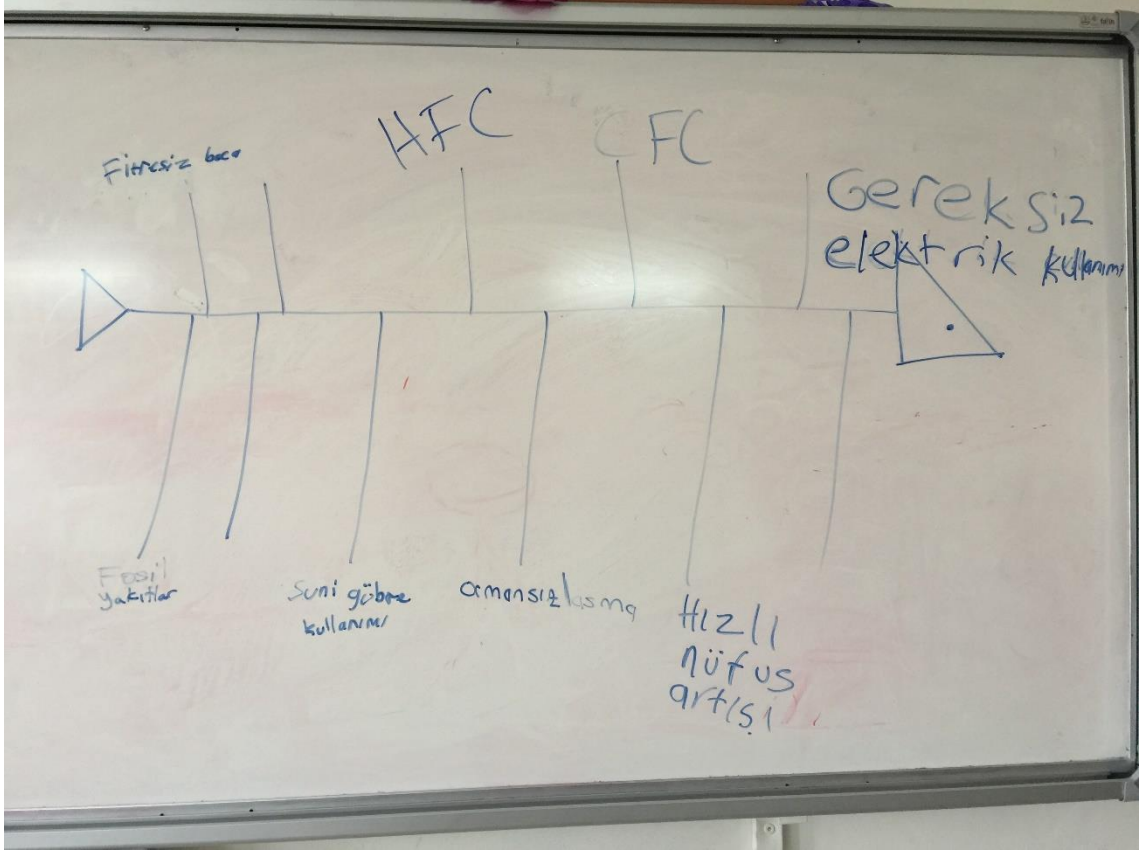 HFC
CFC
Fitresiz baca
Gereksiz
elektrik kullanımı
Fosil
yakıtlar
Suni gübre
kullanımı
ormansızlaşma
Hızlı
nüfus
artışı